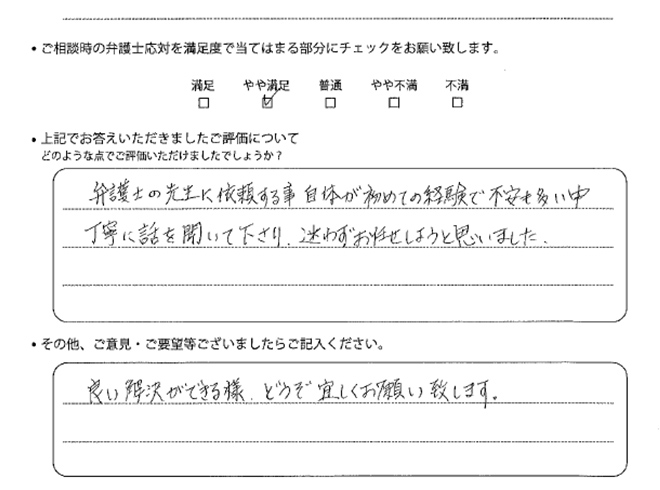 ・ご相談時の弁護士応対を満足度で当てはまる部分にチェックをお願い致します。
満足 やや満足 普通 やや不満 不満
□ ☑ □ □ □
・上記でお答えいただきましたご評価について
どのような点でご評価いただけましたでしょうか？
弁護士の先生に依頼する事自体が初めての経験で不安も多い中
丁寧に話を聞いて下さり、迷わずお任せしようと思いました。
・その他、ご意見・ご要望等ございましたらご記入ください。
良い解決ができる様、どうぞ宜しくお願い致します。